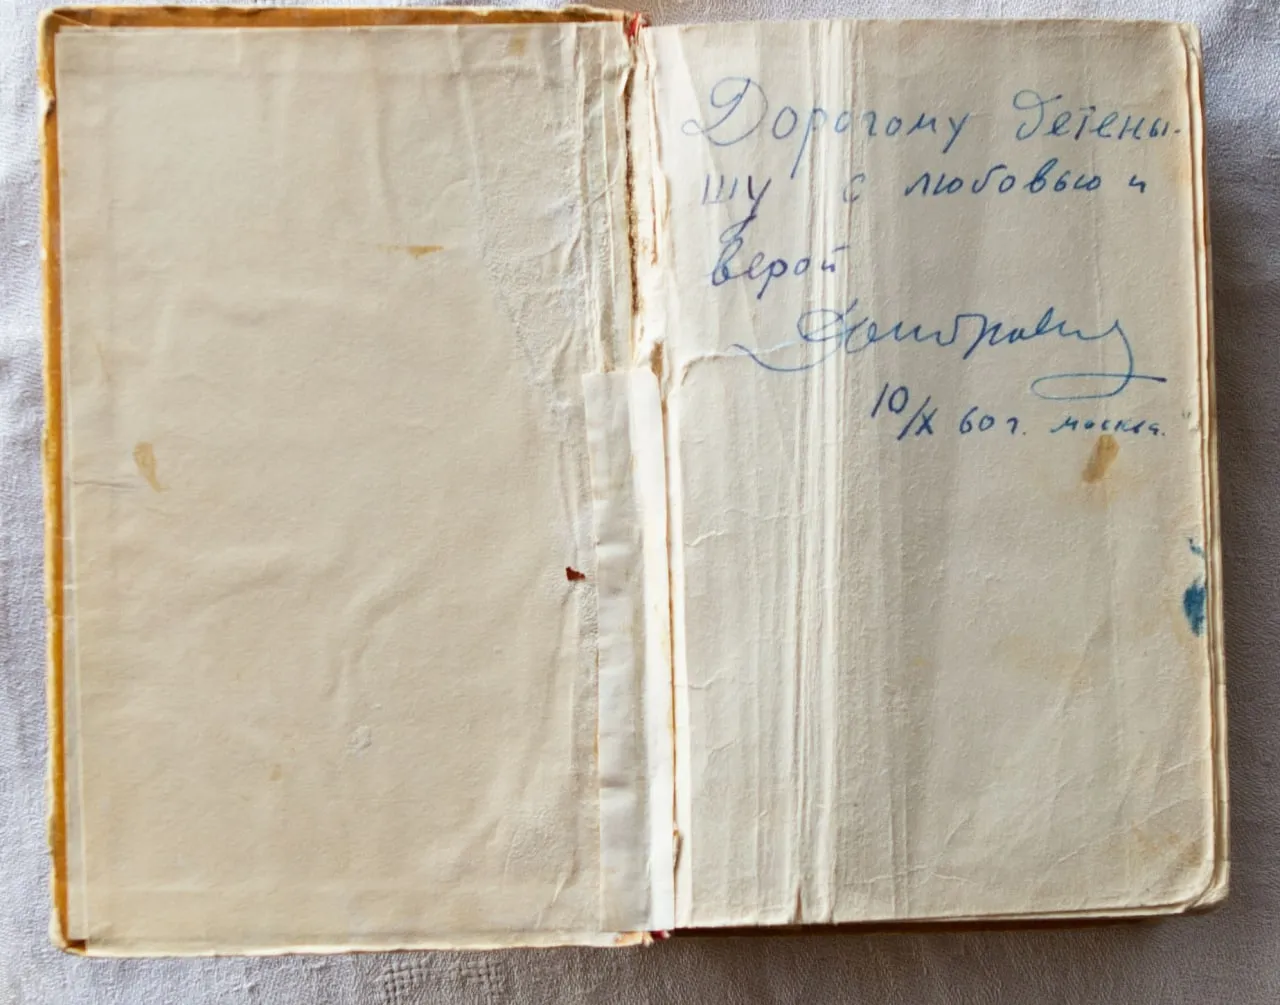 Дорогому детены-
шу с любовью и
верой
10/X 60 г. Москва.